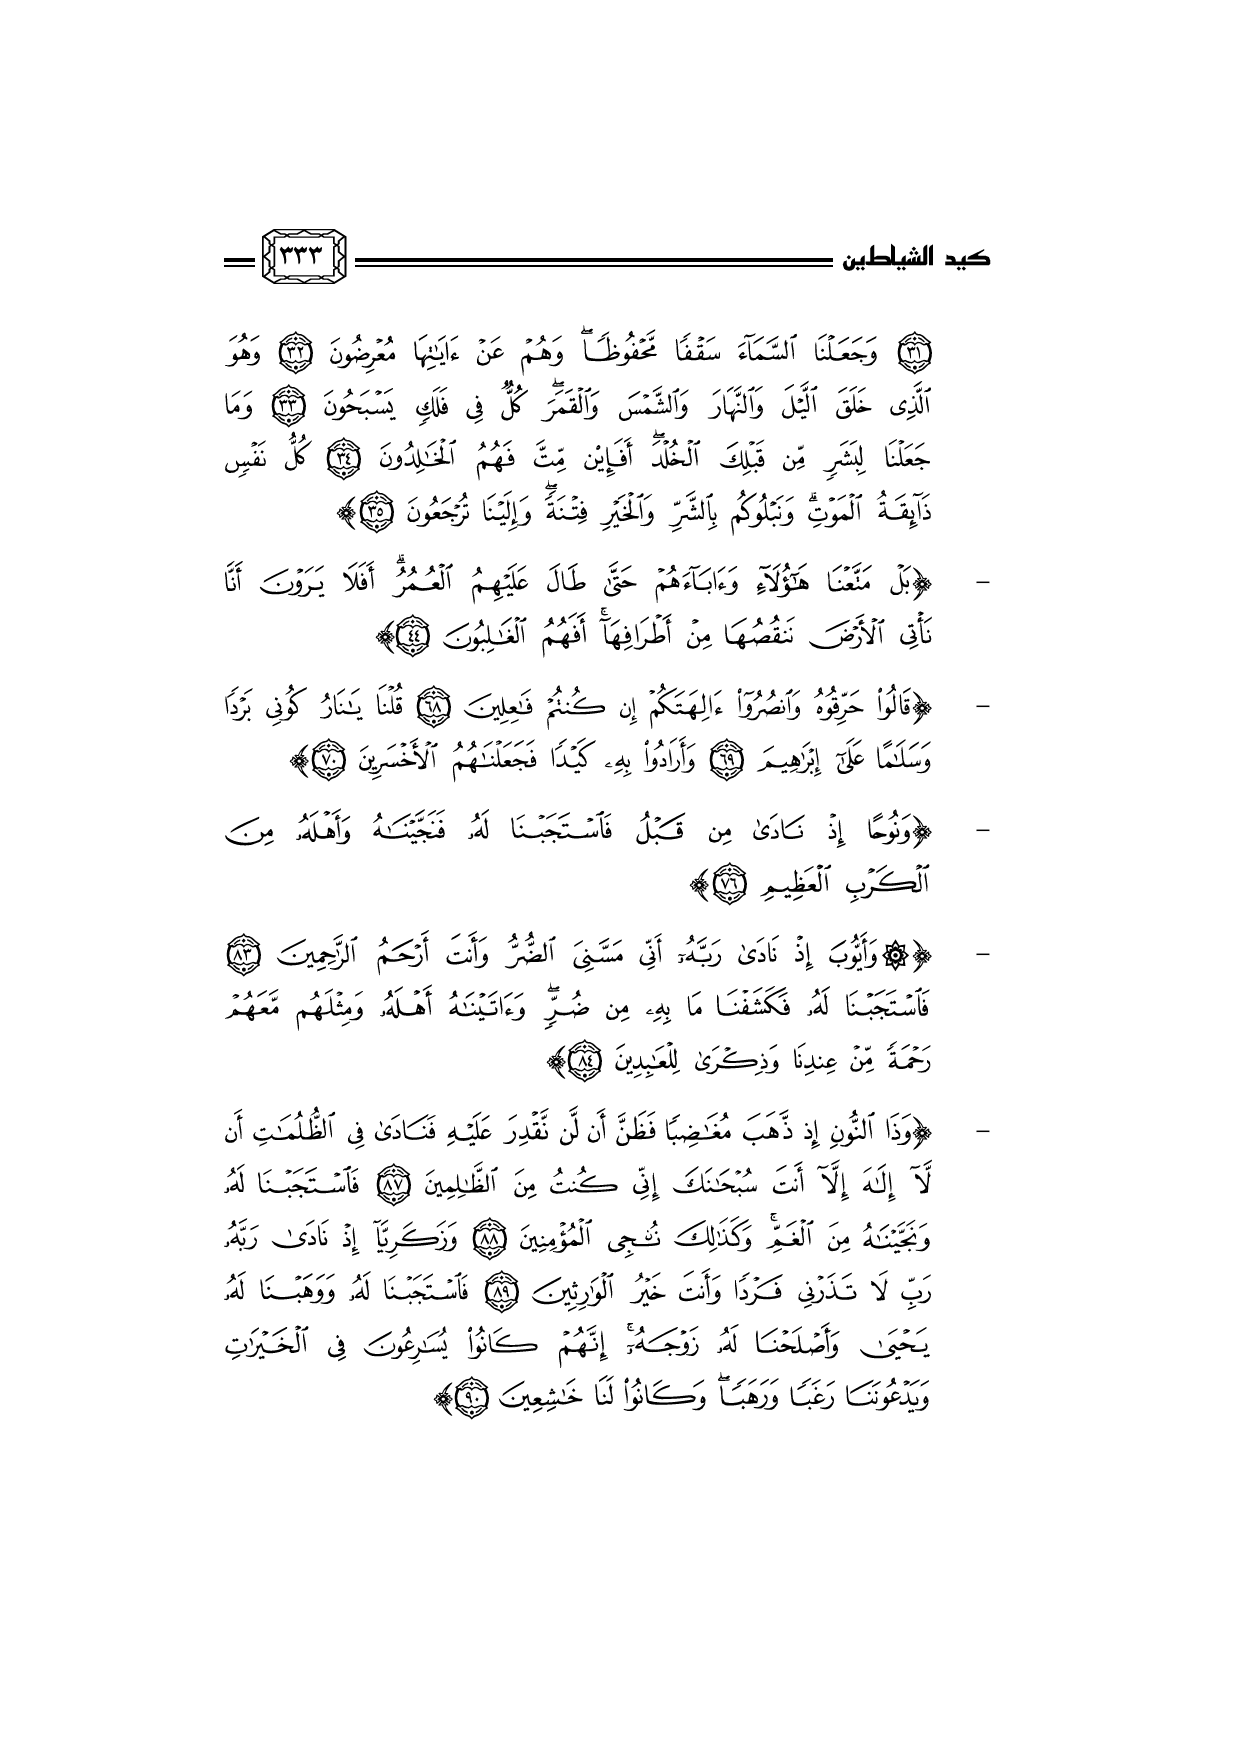 كيد الشياطين ٣٣٣
٣١ وَجَعَلْنَا ٱلسَّمَآءَ سَقْفًا مَّحْفُوظًاۖ وَهُمْ عَنْ ءَايَٰتِهَا مُعْرِضُونَ ٣٢ وَهُوَ
ٱلَّذِى خَلَقَ ٱلَّيْلَ وَٱلنَّهَارَ وَٱلشَّمْسَ وَٱلْقَمَرَۖ كُلٌّ فِى فَلَكٍ يَسْبَحُونَ ٣٣ وَمَا
جَعَلْنَا لِبَشَرٍ مِّن قَبْلِكَ ٱلْخُلْدَۖ أَفَإِيْن مِّتَّ فَهُمُ ٱلْخَٰلِدُونَ ٣٤ كُلُّ نَفْسٍ
ذَآئِقَةُ ٱلْمَوْتِۗ وَنَبْلُوكُم بِٱلشَّرِّ وَٱلْخَيْرِ فِتْنَةًۖ وَإِلَيْنَا تُرْجَعُونَ ٣٥﴾
- ﴿بَلْ مَتَّعْنَا هَٰٓؤُلَآءِ وَءَابَآءَهُمْ حَتَّىٰ طَالَ عَلَيْهِمُ ٱلْعُمُرُۗ أَفَلَا يَرَوْنَ أَنَّا
نَأْتِى ٱلْأَرْضَ نَنقُصُهَا مِنْ أَطْرَافِهَآۚ أَفَهُمُ ٱلْغَٰلِبُونَ ٤٤﴾
- ﴿قَالُوا۟ حَرِّقُوهُ وَٱنصُرُوٓا۟ ءَالِهَتَكُمْ إِن كُنتُمْ فَٰعِلِينَ ٦٨ قُلْنَا يَٰنَارُ كُونِى بَرْدًا
وَسَلَٰمًا عَلَىٰٓ إِبْرَٰهِيمَ ٦٩ وَأَرَادُوا۟ بِهِۦ كَيْدًا فَجَعَلْنَٰهُمُ ٱلْأَخْسَرِينَ ٧٠﴾
- ﴿وَنُوحًا إِذْ نَادَىٰ مِن قَبْلُ فَٱسْتَجَبْنَا لَهُۥ فَنَجَّيْنَٰهُ وَأَهْلَهُۥ مِنَ
ٱلْكَرْبِ ٱلْعَظِيمِ ٧٦﴾
- ﴿۞وَأَيُّوبَ إِذْ نَادَىٰ رَبَّهُۥٓ أَنِّى مَسَّنِىَ ٱلضُّرُّ وَأَنتَ أَرْحَمُ ٱلرَّٰحِمِينَ ٨٣
فَٱسْتَجَبْنَا لَهُۥ فَكَشَفْنَا مَا بِهِۦ مِن ضُرٍّۖ وَءَاتَيْنَٰهُ أَهْلَهُۥ وَمِثْلَهُم مَّعَهُمْ
رَحْمَةً مِّنْ عِندِنَا وَذِكْرَىٰ لِلْعَٰبِدِينَ ٨٤﴾
- ﴿وَذَا ٱلنُّونِ إِذ ذَّهَبَ مُغَٰضِبًا فَظَنَّ أَن لَّن نَّقْدِرَ عَلَيْهِ فَنَادَىٰ فِى ٱلظُّلُمَٰتِ أَن
لَّآ إِلَٰهَ إِلَّآ أَنتَ سُبْحَٰنَكَ إِنِّى كُنتُ مِنَ ٱلظَّٰلِمِينَ ٨٧ فَٱسْتَجَبْنَا لَهُۥ
وَنَجَّيْنَٰهُ مِنَ ٱلْغَمِّۚ وَكَذَٰلِكَ نُۨجِى ٱلْمُؤْمِنِينَ ٨٨ وَزَكَرِيَّآ إِذْ نَادَىٰ رَبَّهُۥ
رَبِّ لَا تَذَرْنِى فَرْدًا وَأَنتَ خَيْرُ ٱلْوَٰرِثِينَ ٨٩ فَٱسْتَجَبْنَا لَهُۥ وَوَهَبْنَا لَهُۥ
يَحْيَىٰ وَأَصْلَحْنَا لَهُۥ زَوْجَهُۥٓۚ إِنَّهُمْ كَانُوا۟ يُسَٰرِعُونَ فِى ٱلْخَيْرَٰتِ
وَيَدْعُونَنَا رَغَبًا وَرَهَبًاۖ وَكَانُوا۟ لَنَا خَٰشِعِينَ ٩٠﴾